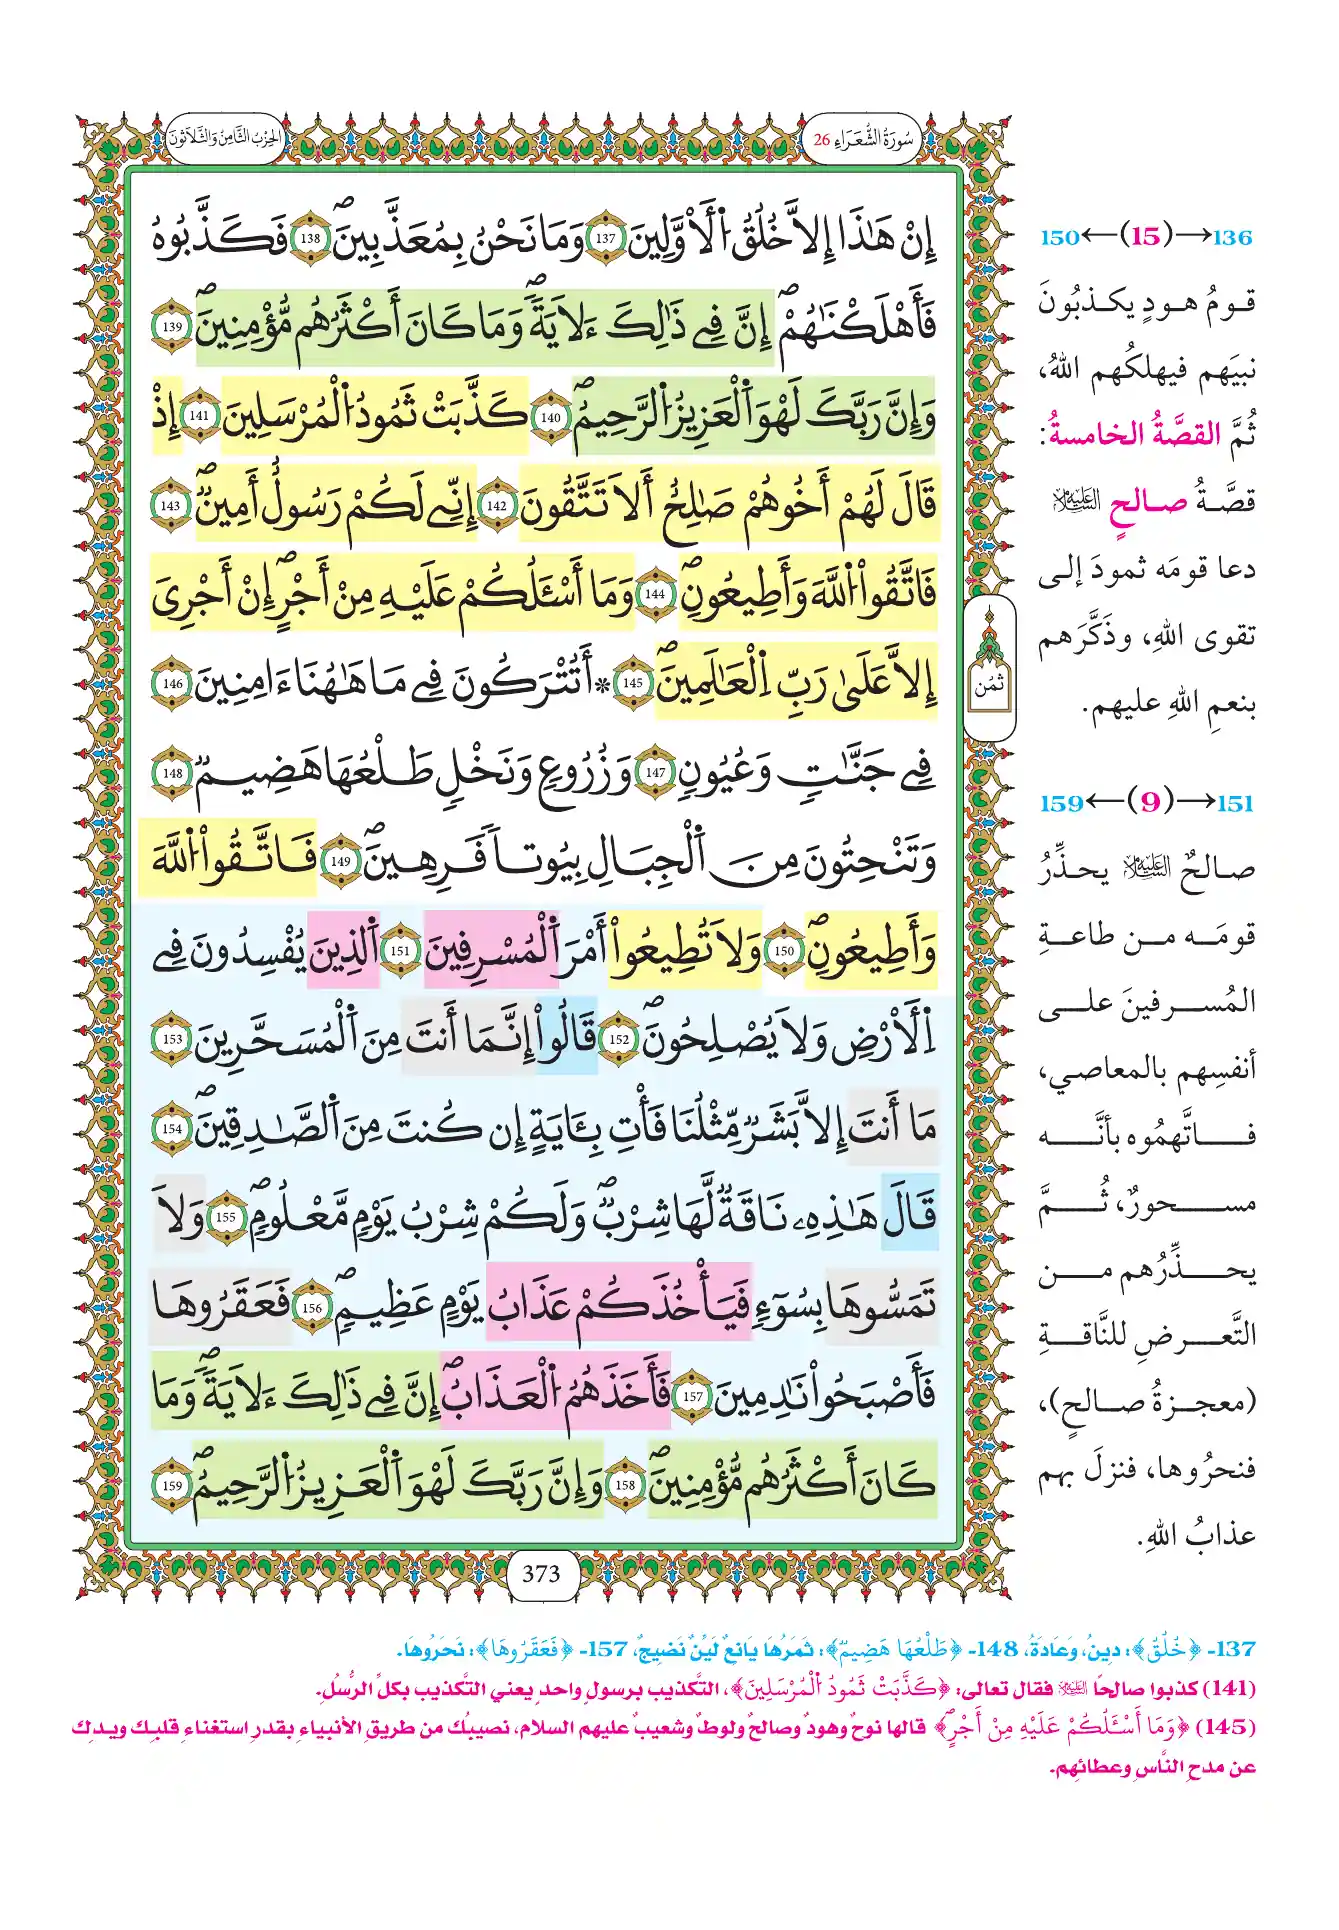 سُورَةُ الشُّعَرَاءِ 26
الحِزْبُ الثَّامِنُ وَالثَّلَاثُونَ
إِنْ هَٰذَا إِلَّا خُلُقُ اُ۬لَاوَّلِينَ 137 وَمَا نَحْنُ بِمُعَذَّبِينَۖ 138 فَكَذَّبُوهُ
فَأَهْلَكْنَٰهُمْۖ إِنَّ فِے ذَٰلِكَ ءَلَايَةٗۖ وَمَا كَانَ أَكْثَرُهُم مُّؤْمِنِينَۖ 139
وَإِنَّ رَبَّكَ لَهْوَ اَ۬لْعَزِيزُ اُ۬لرَّحِيمُۖ 140 كَذَّبَتْ ثَمُودُ اُ۬لْمُرْسَلِينَ 141 إِذْ
قَالَ لَهُمْ أَخُوهُمْ صَٰلِحٌ أَلَا تَتَّقُونَ 142 إِنِّے لَكُمْ رَسُولٌ أَمِينٞۖ 143
فَاتَّقُواْ اُ۬للَّهَ وَأَطِيعُونِۖ 144 وَمَا أَسْـَٔلُكُمْ عَلَيْهِ مِنْ أَجْرٍۖ إِنْ أَجْرِىَ
إِلَّا عَلَىٰ رَبِّ اِ۬لْعَٰلَمِينَۖ 145 * أَتُتْرَكُونَ فِے مَا هَٰهُنَا ءَامِنِينَ 146
فِے جَنَّٰتٖ وَعُيُونٖ 147 وَزُرُوعٖ وَنَخْلٖ طَلْعُهَا هَضِيمٞ 148
وَتَنْحِتُونَ مِنَ اَ۬لْجِبَالِ بِيُوتاٗ فَرِهِينَۖ 149 فَاتَّقُواْ اُ۬للَّهَ
وَأَطِيعُونِۖ 150 وَلَا تُطِيعُواْ أَمْرَ اَ۬لْمُسْرِفِينَ 151 اَ۬لذِينَ يُفْسِدُونَ فِے
اِ۬لَارْضِ وَلَا يُصْلِحُونَۖ 152 قَالُواْ إِنَّمَا أَنتَ مِنَ اَ۬لْمُسَحَّرِينَ 153
مَا أَنتَ إِلَّا بَشَرٞ مِّثْلُنَا فَأْتِ بِـَٔايَةٍ إِن كُنتَ مِنَ اَ۬لصَّٰدِقِينَۖ 154
قَالَ هَٰذِهِۦ نَاقَةٞ لَّهَا شِرْبٞۖ وَلَكُمْ شِرْبُ يَوْمٖ مَّعْلُومٖۖ 155 وَلَا
تَمَسُّوهَا بِسُوٓءٖ فَيَأْخُذَكُمْ عَذَابُ يَوْمٍ عَظِيمٖۖ 156 فَعَقَرُوهَا
فَأَصْبَحُواْ نَٰدِمِينَ 157 فَأَخَذَهُمُ اُ۬لْعَذَابُۖ إِنَّ فِے ذَٰلِكَ ءَلَايَةٗۖ وَمَا
كَانَ أَكْثَرُهُم مُّؤْمِنِينَۖ 158 وَإِنَّ رَبَّكَ لَهْوَ اَ۬لْعَزِيزُ اُ۬لرَّحِيمُۖ 159
ثُمُن
373
136→(15)←150
قومُ هودٍ يكذبُونَ
نبيَهم فيهلكُهم اللهُ،
ثُمَّ القصَّةُ الخامسةُ:
قصَّةُ صالحٍ عليه السلام
دعا قومَه ثمودَ إلى
تقوى اللهِ، وذَكَّرَهم
بنعمِ اللهِ عليهم.
151→(9)←159
صالحٌ عليه السلام يحذِّرُ
قومَه من طاعةِ
المُسرفينَ على
أنفسِهم بالمعاصي،
فاتَّهمُوه بأنَّه
مسحورٌ، ثُمَّ
يحذِّرُهم من
التَّعرضِ للنَّاقةِ
(معجزةُ صالحٍ)،
فنحرُوها، فنزلَ بهم
عذابُ اللهِ.
137- ﴿خُلُقُ﴾: دِينُ، وَعَادَةُ، 148- ﴿طَلْعُهَا هَضِيمٞ﴾: ثَمَرُهَا يَانِعٌ لَيِّنٌ نَضِيجٌ، 157- ﴿فَعَقَرُوهَا﴾: نَحَرُوهَا.
(141) كذبوا صالحًا عليه السلام فقال تعالى: ﴿كَذَّبَتْ ثَمُودُ اُ۬لْمُرْسَلِينَ﴾، التَّكذيب برسولٍ واحدٍ يعني التَّكذيب بكلِّ الرُّسُلِ.
(145) ﴿وَمَا أَسْـَٔلُكُمْ عَلَيْهِ مِنْ أَجْرٍۖ﴾ قالها نوحٌ وهودٌ وصالحٌ ولوطٌ وشعيبٌ عليهم السلام، نصيبُك من طريقِ الأنبياءِ بقدرِ استغناءِ قلبِك ويدِك
عن مدحِ النَّاسِ وعطائِهم.